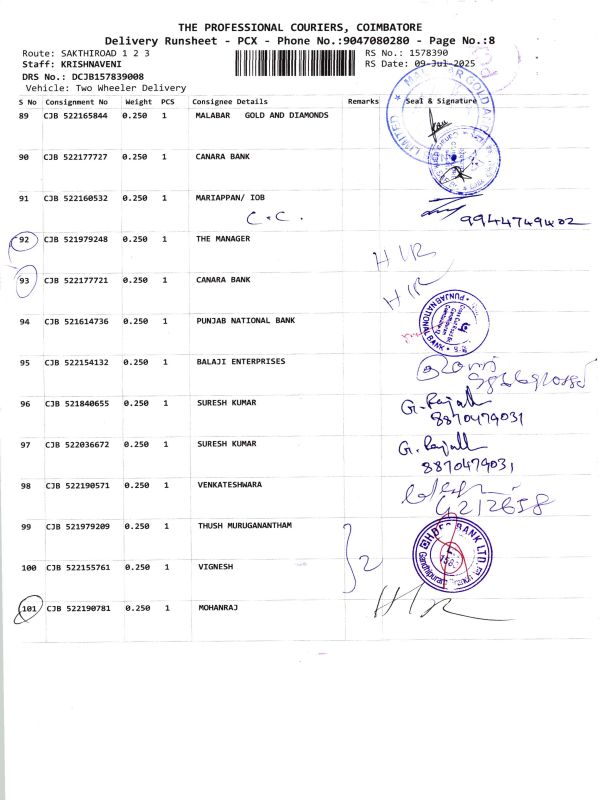 THE PROFESSIONAL COURIERS, COIMBATORE
Delivery Runsheet - PCX - Phone No.:9047080280 - Page No.:8
Route: SAKTHIROAD 1 2 3 RS No.: 1578390
Staff: KRISHNAVENI RS Date: 09-Jul-2025
DRS No.: DCJB157839008
Vehicle: Two Wheeler Delivery
S No Consignment No Weight PCS Consignee Details Remarks Seal & Signature
89 CJB 522165844 0.250 1 MALABAR GOLD AND DIAMONDS
90 CJB 522177727 0.250 1 CANARA BANK
91 CJB 522160532 0.250 1 MARIAPPAN/ IOB
C.C. 9944749402
92 CJB 521979248 0.250 1 THE MANAGER
HIR
93 CJB 522177721 0.250 1 CANARA BANK
HIR
94 CJB 521614736 0.250 1 PUNJAB NATIONAL BANK
PUNJAB NATIONAL BANK
95 CJB 522154132 0.250 1 BALAJI ENTERPRISES
96 CJB 521840655 0.250 1 SURESH KUMAR G. Rajall
8870479031
97 CJB 522036672 0.250 1 SURESH KUMAR G. Rajall
8870479031
98 CJB 522190571 0.250 1 VENKATESHWARA
4212658
99 CJB 521979209 0.250 1 THUSH MURUGANANTHAM
HDFC BANK LTD.
Gandhipuram Branch
2
100 CJB 522155761 0.250 1 VIGNESH
101 CJB 522190781 0.250 1 MOHANRAJ
HIR